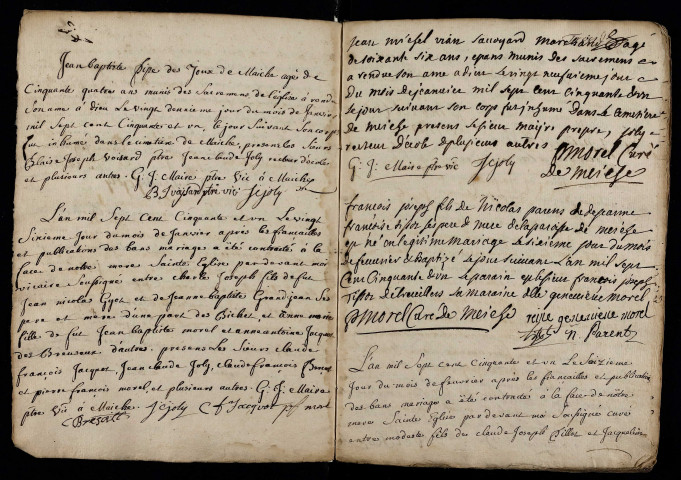 Jean baptiste pipe des Joux de Maiche agé de
Cinquante quatre ans munis des Sacremens de l'eglise a rendu
son ame a dieu Le vingt deuxieme jour du mois de Janvier
mil Sept Cent Cinquante et un, le jour Suivant Son corps
fut inhumé dans le cimetiere de Maiche, presens les Sieurs
Blaise Joseph voisard ptre Jean Claude Joly recteur d'ecole
et plusieurs autres. G. J. Maire ptre vic à Maiche
B J voisard ptre vic JCjoly
L'an mil Sept Cent Cinquante et un Le vingt
Sixieme Jour du mois de Janvier après les fiancailles
et publications des bans mariage a été contracté à la
face de notre mere Sainte Eglise par devant moi
vicaire Soussigné entre charle Joseph fils de fut
Jean nicolas et de Jeanne baptiste Grandjean Ses
pere et mere d'une part des Biches et anne marie
fille de fut Jean baptiste morel et anne antoine Jacquet
des Breuseux d'autre, presens les Sieurs claude
françois Jacquet, Jean claude Joly, claude francois
et pierre françois morel et plusieurs autres. G. J. Maire
ptre vic à Maiche JCjoly Jacquet pf morel
Jean michel vian Savoyard marchand agé
de soixant six ans, munis des sacremens
a rendu son ame a dieu le vingt neufvieme jour
du mois de janvier mil sept cent cinquante d'un
le jour suivant son corps fut inhumé Dans le cemetiere
de meiche presens le sieur maire prepre, joly
recteur d'ecole plusieurs autres
G. J. Maire ptre vic JCjoly Morel Curé
De meiche
francois joseph fils de Nicolas parens de
françoise tissot ses pere et mere de la paroise de meiche
est né en legitime mariage le sixieme jour du mois
de fevrier et Baptizé le jour suivant L'an mil sept
Cent Cinquante d'un le parain est le sieur francois joseph
Tissot de Trevillers sa maraine dlle genevieve morel
Morel Curé de meiche genevieve morel
n. Parent
L'an mil Sept cent Cinquante et un Le Seizieme
Jour du mois de fevrier après les fiancailles et publication
des bans mariage a été contracté a la face de notre
mere Sainte Eglise par devant moi Soussigné curé
entre modeste fils de claude Joseph Billot et Jacqueline